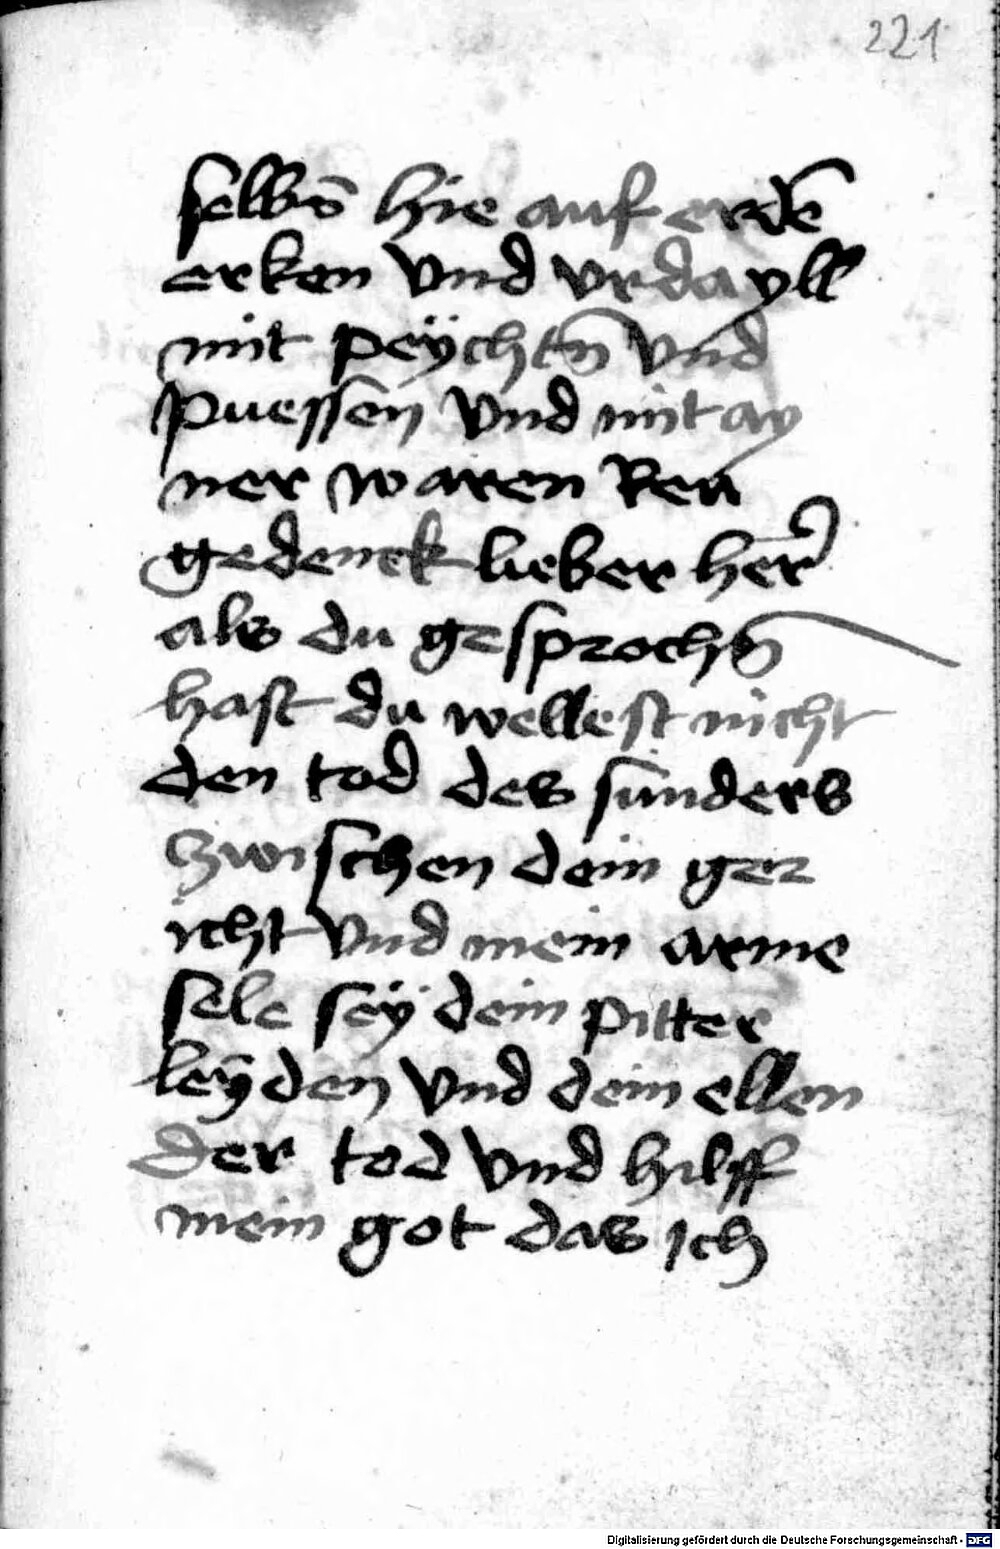 221
selbs hie auf erdē
erken vnd vrdayll
mit peÿchtn̄ vnd
puessen vnd mit ay
ner waren Reu
gedenck lieber her
als du gesprochn̄
hast du wellest nicht
den tod des sunders
zwischen dein ger
icht vnd mein arme
sele seÿ dein pitter
leÿden vnd dein ellen
der tod vnd hilff
mein got das ich
Digitalisierung gefördert durch die Deutsche Forschungsgemeinschaft - DFG